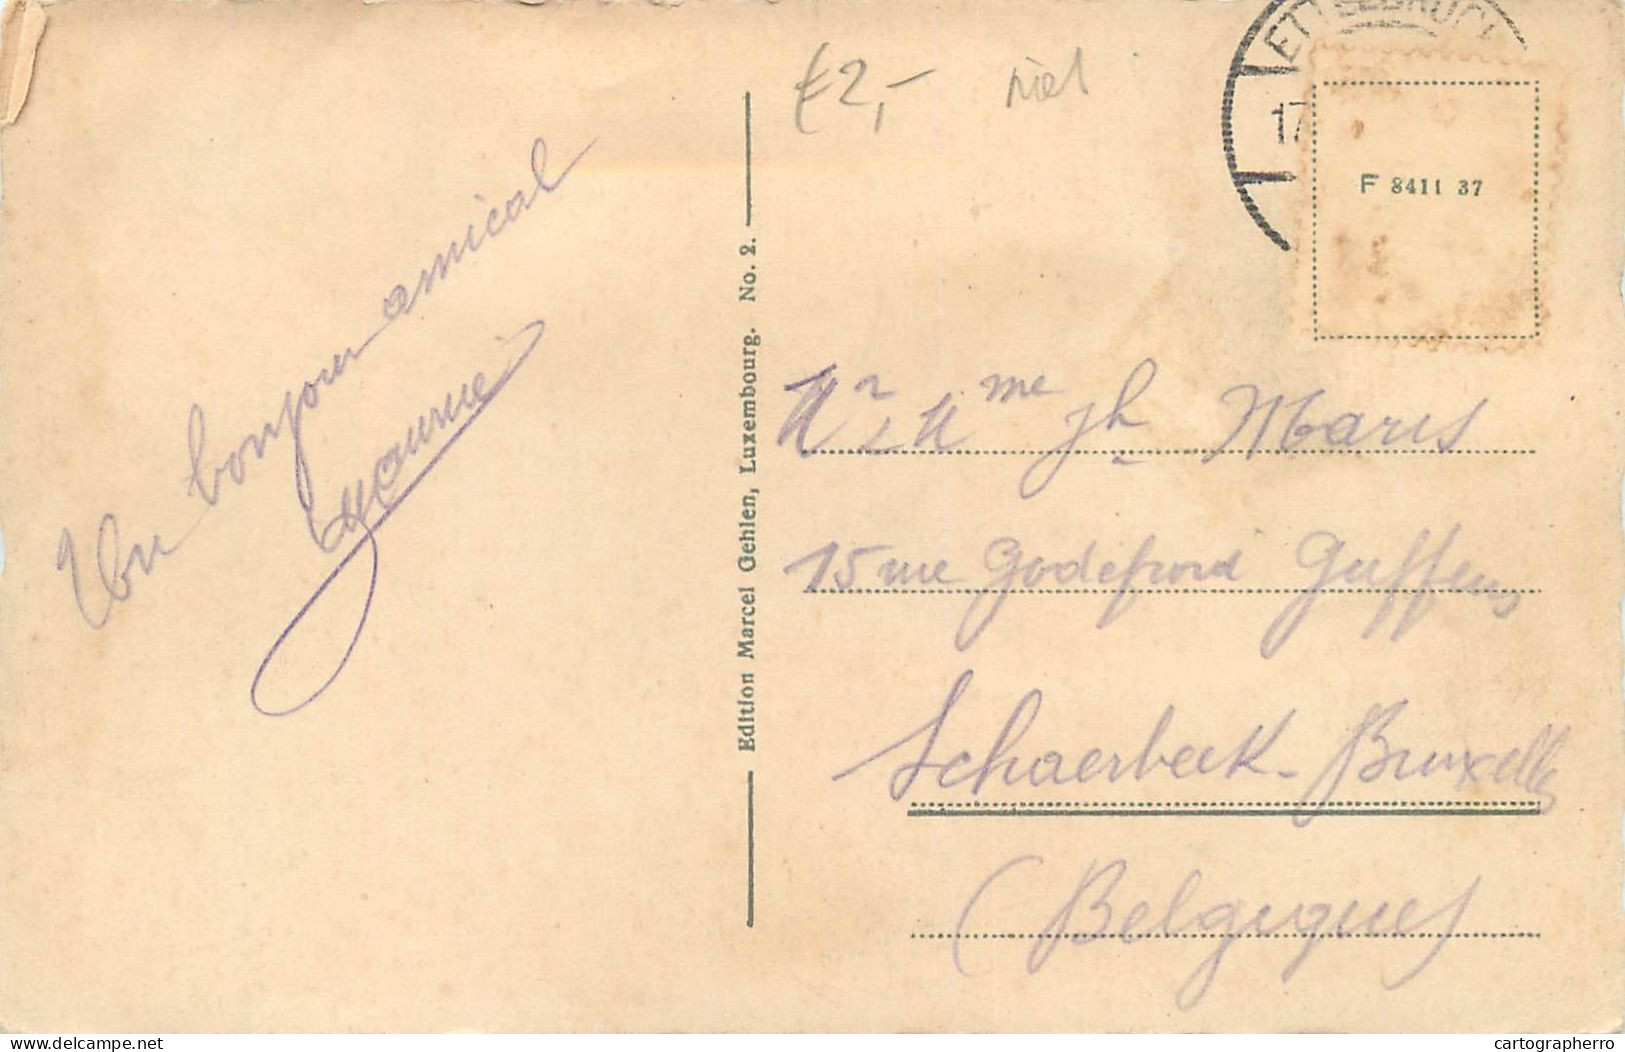 Un bonjour amical
€2,-
ETTELBRUCK
17
F 8411 37
Edition Marcel Gehlen, Luxembourg. No. 2.
Mr & Mme Jh Maris
15 rue Godefroid Guffens
Schaerbeek-Bruxelles
(Belgique)
www.delcampe.net
cartographerro